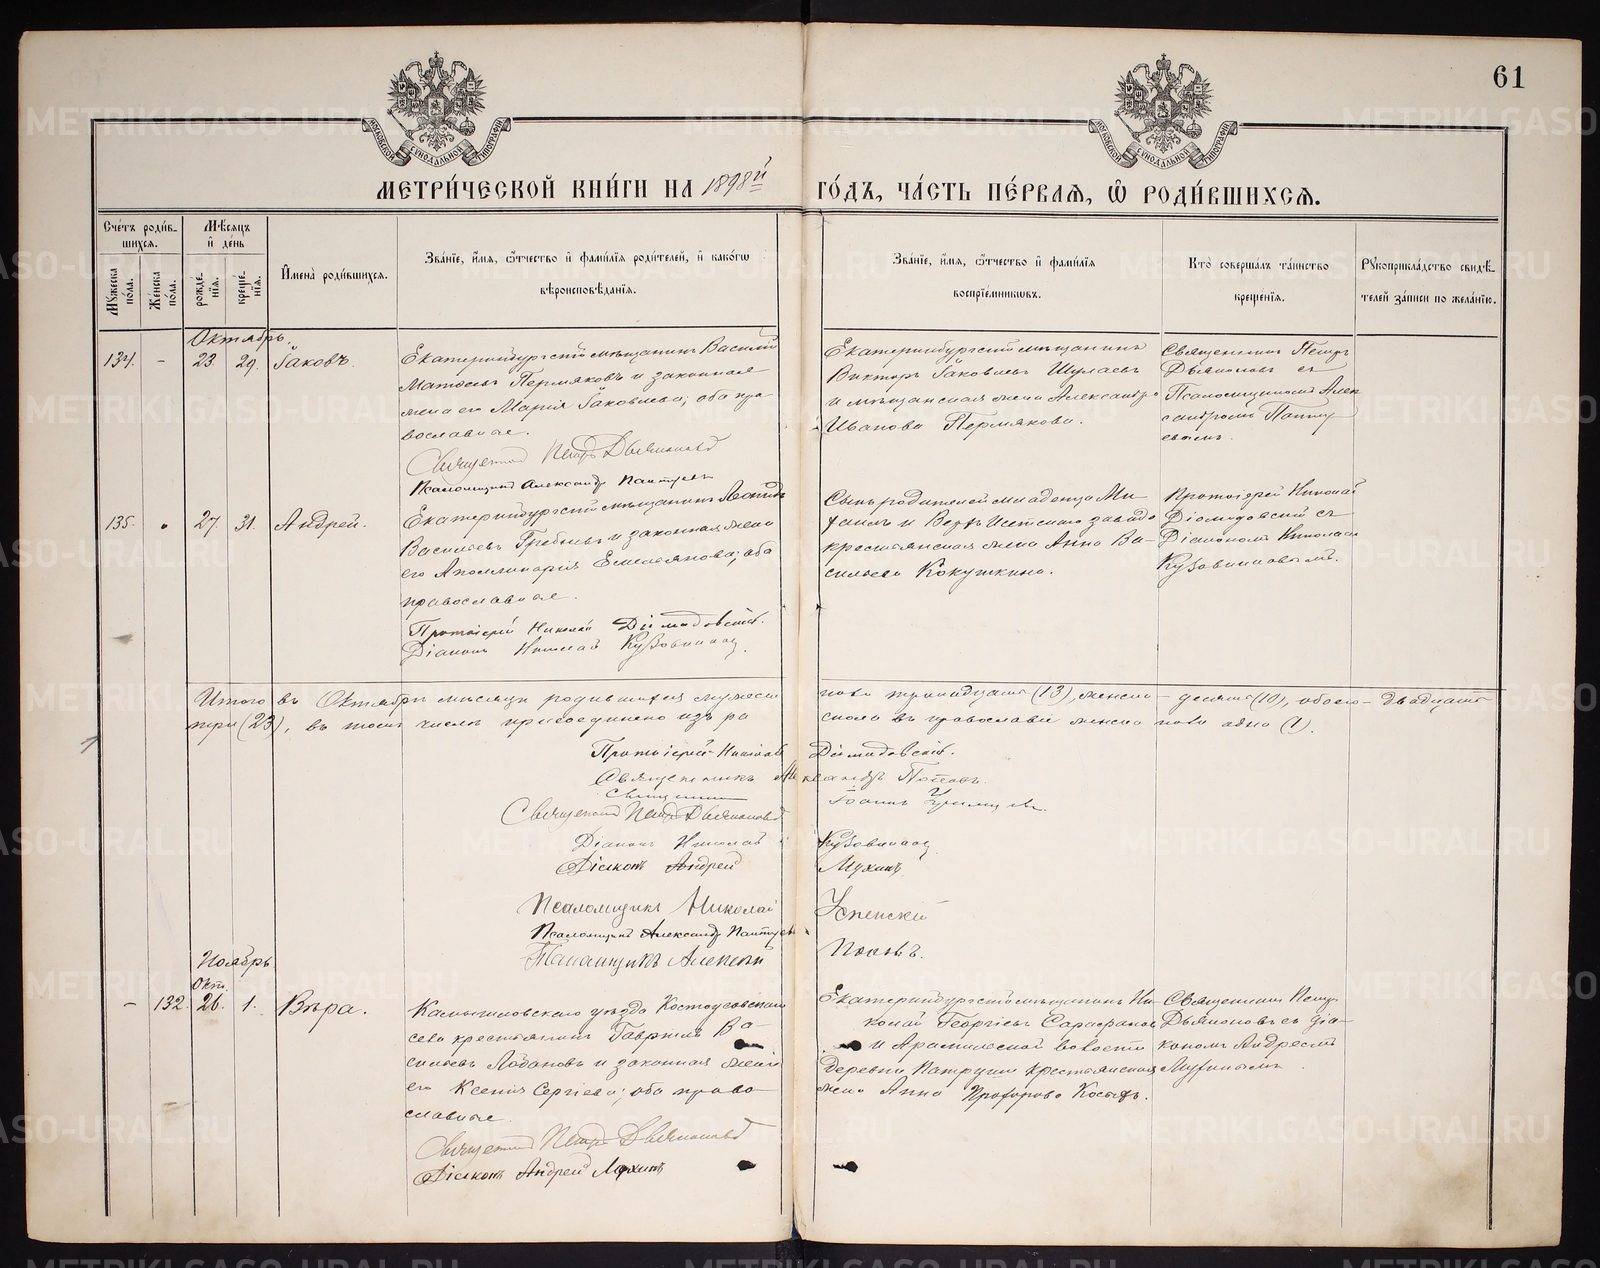 61
МЕТРИ́ЧЕСКОЙ КНИ́ГИ НА 1898й ГО́ДЪ, ЧА́СТЬ ПЕ́РВАѦ, Ѽ РОДИ́ВШИХСѦ.
Сче́тъ роди́в-
шихсѧ.
Мѣ́сѧцъ
и҆ де́нь
Мꙋ́жеска
по́ла.
Же́нска
по́ла.
рожде́-
нїѧ.
креще́-
нїѧ.
И҆мена̀ роди́вшихсѧ.
Зва́нїе, и҆́мѧ, ѻ҆́тчество и҆ фами́лїѧ роди́телей, и҆ како́гѡ
вѣроисповѣ́данїѧ.
Зва́нїе, и҆́мѧ, ѻ҆́тчество и҆ фами́лїѧ
воспрїе́мникѡвъ.
Кто̀ соверша́лъ та́инство
креще́нїѧ.
Рꙋкоприкла́дство свидѣ́-
телей за́писи по жела́нїю.
Октябрь.
134. - 23. 29. Іаковъ.
Екатеринбургскій мѣщанинъ Василій
Матвеевъ Пермяковъ и законная
жена его Марія Іаковлева; оба пра-
вославные.
Священникъ Петръ Дьяконовъ
Псаломщикъ Александръ Пантуевъ
Екатеринбургскій мѣщанинъ
Викторъ Іаковлевъ Шулаевъ
и мѣщанская жена Александра
Иванова Пермякова.
Священникъ Петръ
Дьяконовъ съ
Псаломщикомъ Алек
сандромъ Панту
евымъ.
135. 27. 31. Андрей.
Екатеринбургскій мѣщанинъ Леонидъ
Васильевъ и законная жена
его Аполлинарія Емельянова; оба
православные.
Протоіерей Николай Діомидовскій.
Діаконъ Николай Кузовниковъ.
Сынъ родителей младенца Ми-
хаилъ и Верхъ Исетскаго завода
крестьянская жена Анна Ва-
сильева Кокушкина.
Протоіерей Николай
Діомидовскій съ
Діакономъ Николаемъ
Кузовниковымъ.
Итого въ Октябрѣ мѣсяцѣ родившихся мужеска пола тринадцать (13), женска - десять (10), обоего - двадцать
три (23), въ томъ числѣ присоединено изъ раскола въ православіе женска пола одна (1).
Протоіерей Николай Діомидовскій.
Священникъ Александръ Поповъ.
Священникъ Іоаннъ
Священникъ Петръ Дьяконовъ
Діаконъ Николай Кузовниковъ
Діаконъ Андрей Мухинъ
Псаломщикъ Николай Успенскій
Псаломщикъ Александръ Пантуевъ
Псаломщикъ Алексѣй Поповъ.
Ноябрь
Окт.
- 132. 26. 1. Вѣра.
Камышловскаго уѣзда Костоусовскаго
села крестьянинъ Гавріилъ Ва-
сильевъ Лобановъ и законная жена
его Ксенія Сергіева; оба право-
славные.
Священникъ Петръ Дьяконовъ
Діаконъ Андрей Мухинъ
Екатеринбургскій мѣщанинъ Ни-
колай Георгіевъ Сарафановъ
и Арамильской волости
деревни Патруши крестьянская
жена Анна Прохорова
Священникъ Петръ
Дьяконовъ съ діа-
кономъ Андреемъ
Мухинымъ.
МОСКОВСКОЙ СѴНОДАЛЬНОЙ ТИПОГРАФІИ
МОСКОВСКОЙ СѴНОДАЛЬНОЙ ТИПОГРАФІИ
METRIKI.GASO-URAL.RU